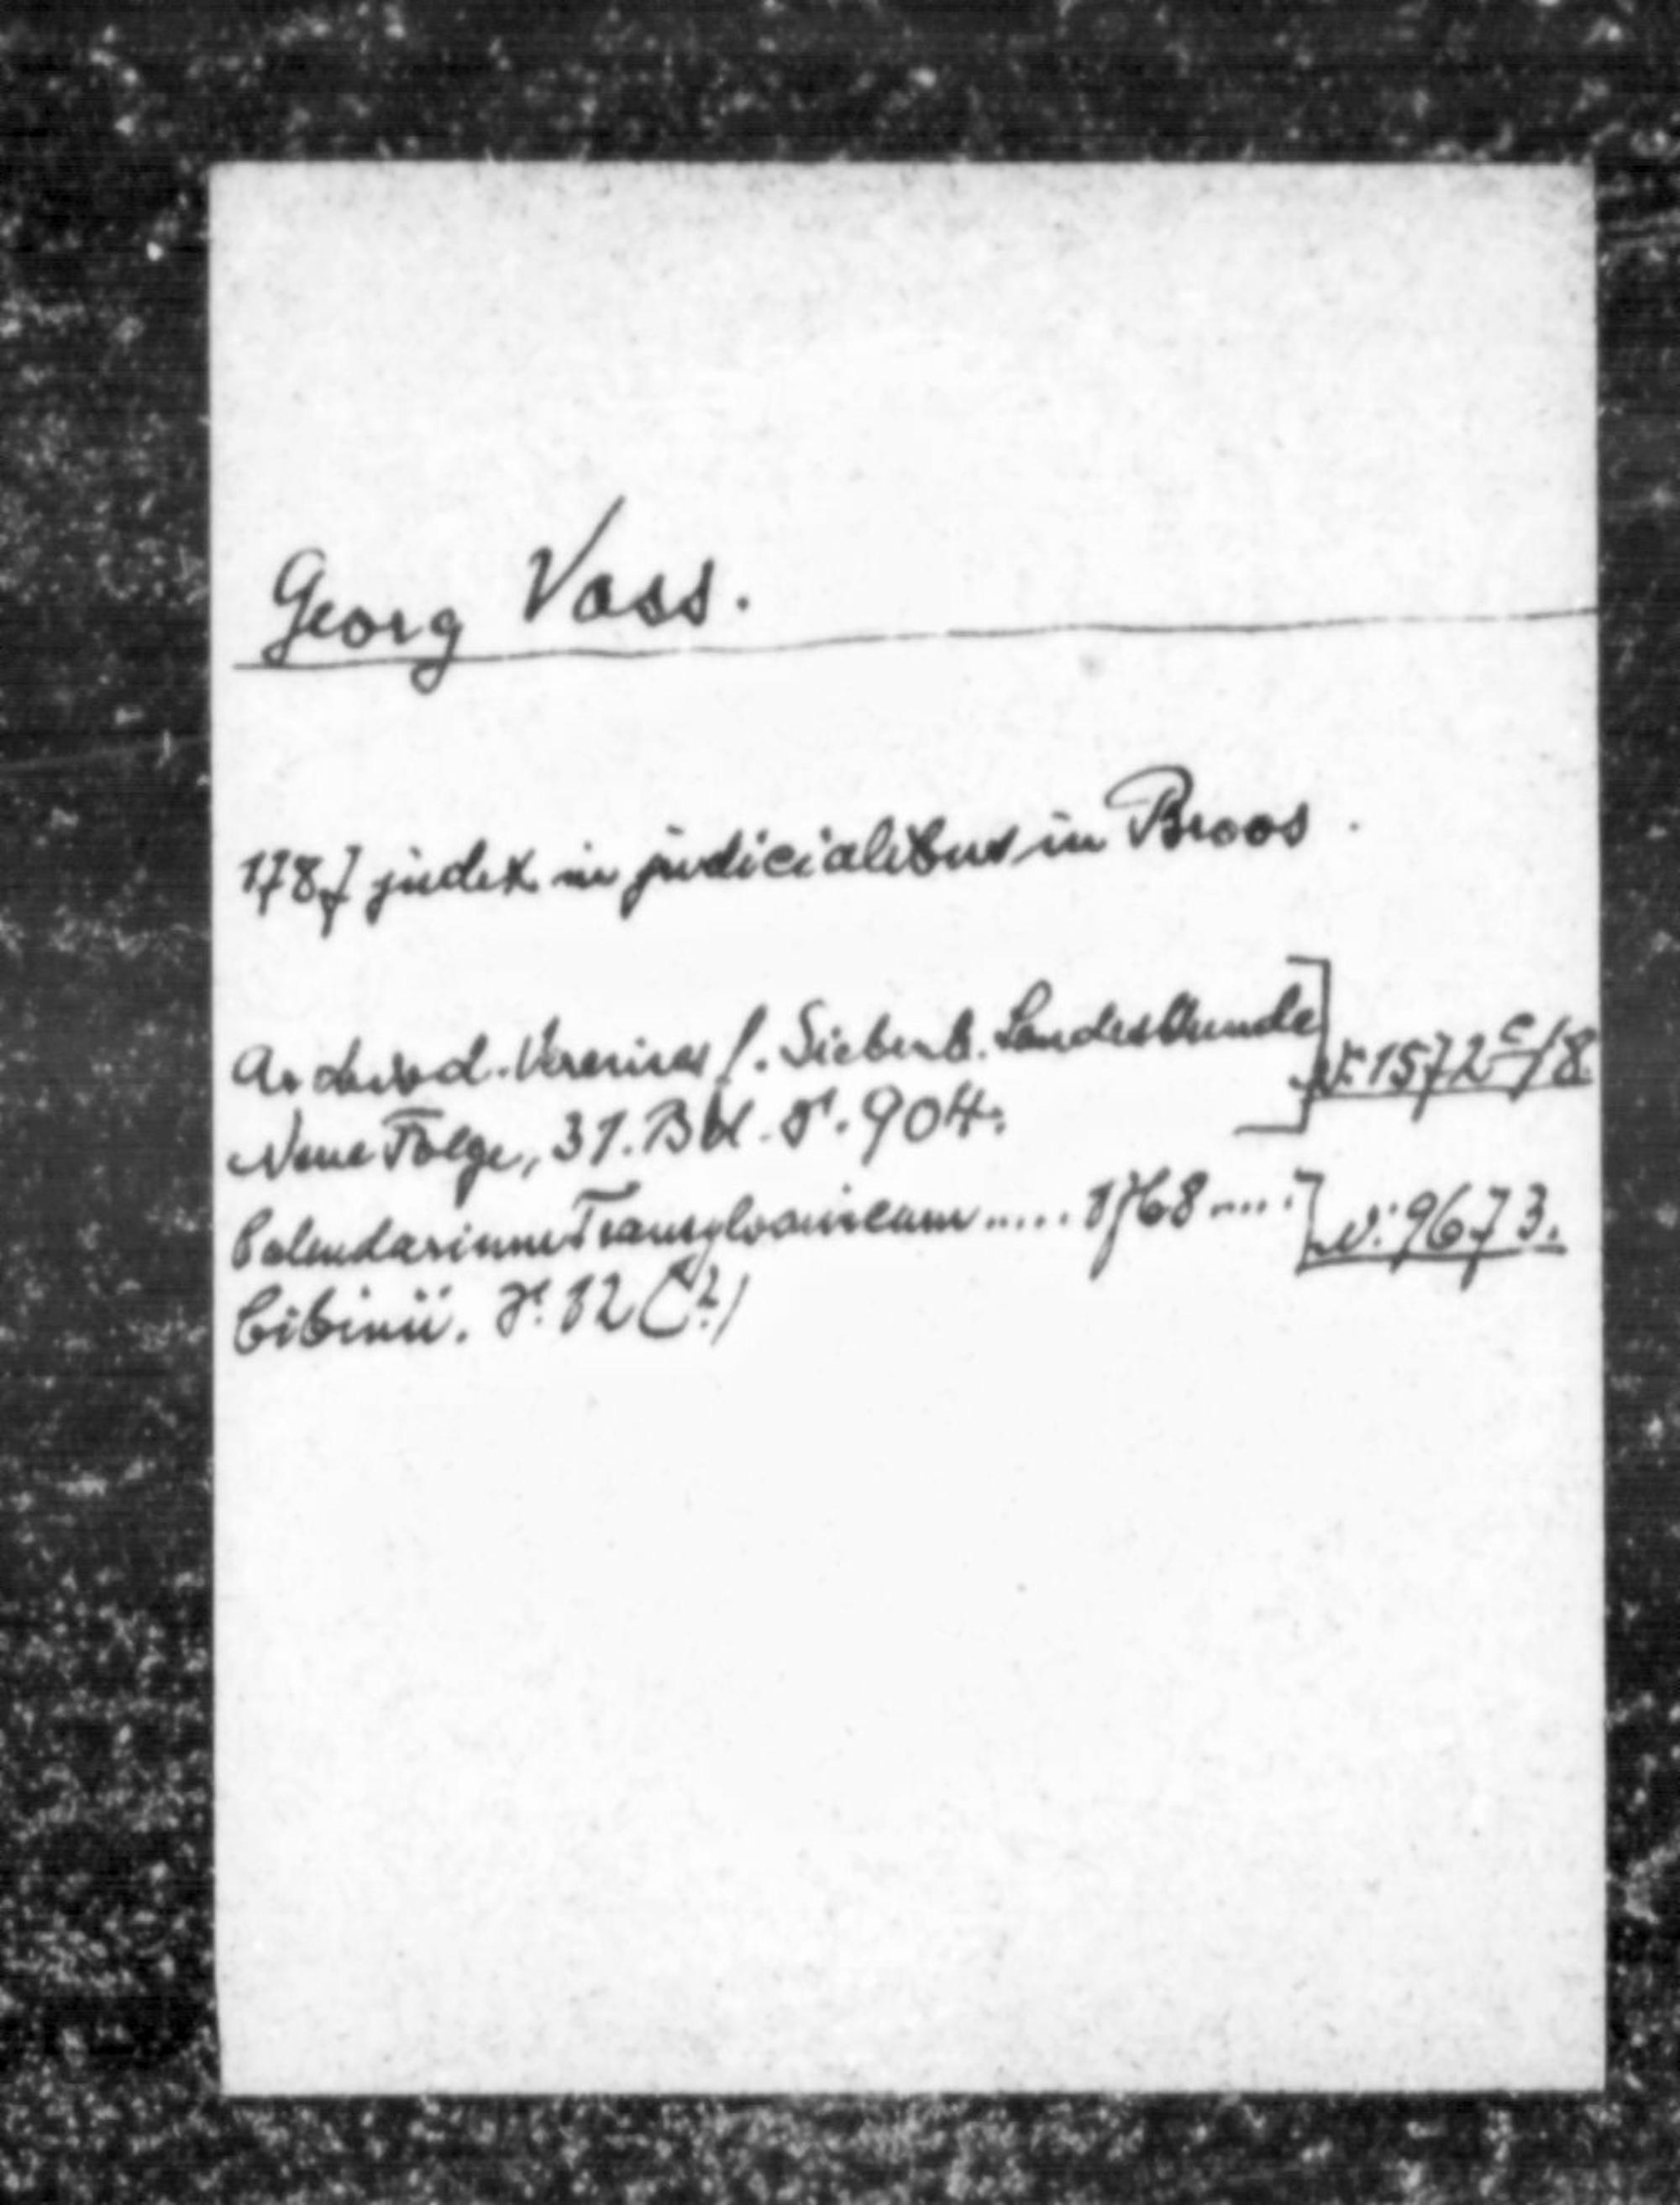 Georg Vass.
1787 judex in judicialibus in Broos.
Archiv d. Vereines f. Siebenb. Landeskunde ] N: 1572 c/8
Neue Folge, 31. Bd. S. 904.
Calendarium Transylvanicum ..... 1768 ..... ] N: 9673.
Cibinii. S. 82 (?)